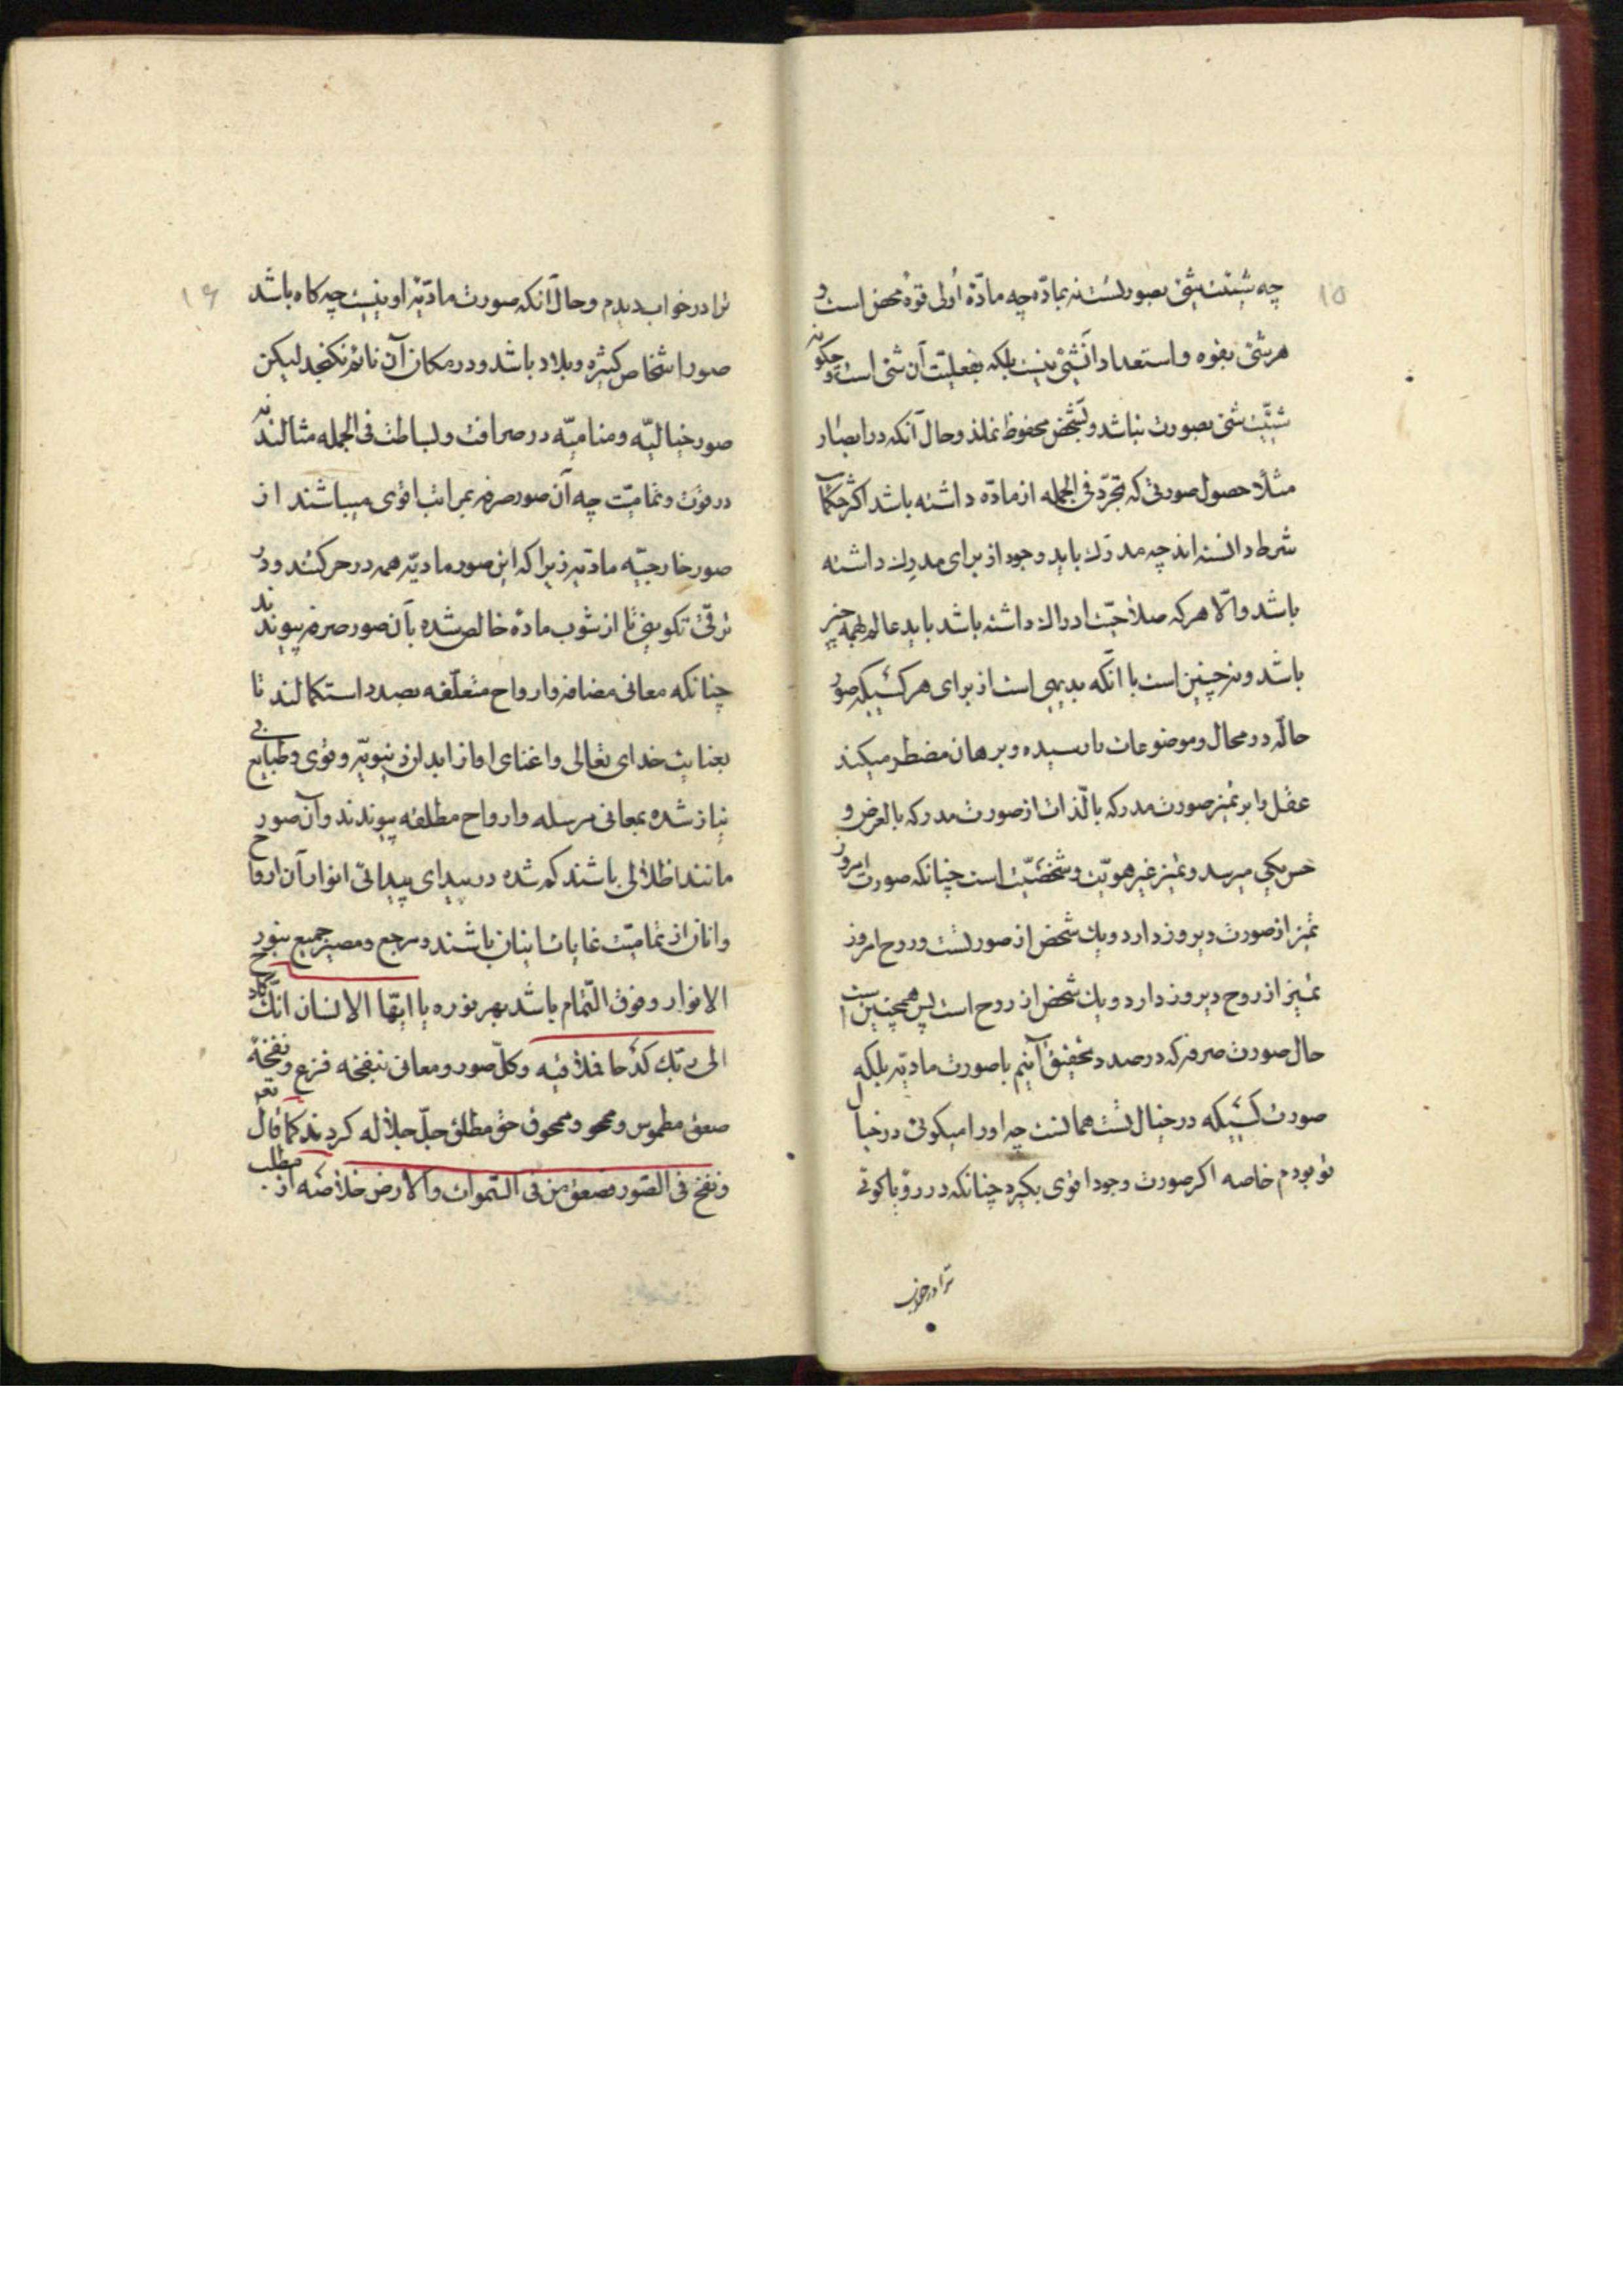 ۱۵
چه شیئیت شیئ بصورتست نه بماده چه مادّه اُولی قوه محض است و
هر شیئ بقوه و استعداد آنشیئ نیست بلکه بفعلیت آن شیئ است و چگونه
شیئیّت شیئ بصورت نباشد و تشخص محفوظ نماند و حال آنکه در ابصار
مثلًا حصول صورتی که تجرّد فی الجمله از مادّه داشته باشد اکثر حکماء
شرط دانسته اند چه مدرَک باید وجود از برای مدرِک داشته
باشد و الّا هر که صلاحیّت ادراک داشته باشد باید عالم بهمه چیز
باشد و نه چنین است با آنکه بدیهی است از برای هر کسیکه صور
حالّه در محال و موضوعات نارسیده و برهان مضطر میکند
عقل را بر تمیز صورت مدرکه بالّذات از صورت مدرکه بالعرض و
حس یکی میرسد و تمیز غیر هویّت و شخصیّت است چنانکه صورت امروز
تمیز از صورت دیروز دارد و یک شخص از صورتست و روح امروز
تمیز از روح دیروز دارد و یک شخص از روح است پس همچنین است
حال صورت صرفه که درصدد تحقیق آنیم با صورت مادیّه بلکه
صورت کسیکه در خیال تست همانست چه او را میگوئی در خیال
تو بودم خاصه اگر صورت وجود اقوی بگیرد چنانکه در رؤیا گوئی
ترا در خواب
۱۶
ترا در خواب دیدم و حال آنکه صورت مادّیّه او نیست چه گاه باشد
صور اشخاص کثیره و بلاد باشد و در مکان آن نائم نگنجد لیکن
صور خیالیّه و منامیّه در صرافت و بساطت فی الجمله مثالند نه
در قوّت و تمامیّت چه آن صور صرفه بمراتب اقوی میباشند از
صور خارجیّه مادّیه زیرا که این صور مادیّه همه در حرکتند و در
ترقّی تکوینی تا از شوب مادّه خالص شده بآن صور صرفه پیوندند
چنانکه معانی مضافه و ارواح متعلّقه بصدد استکمالند تا
بعنایت خدای تعالی و اغنای او از ابدان دنیویّه و قوی و طبایع بی
نیاز شده بمعانی مرسله و ارواح مطلقه پیوندند و آن صور
مانند اظلالی باشند گم شده در بیدای پیدائی انوار آن ارواح
و انان از تمامیّت غایات اینان باشند و مرجع و مصیر جمیع بنور
الانوار و فوق التّمام باشد بهر نوره یا ایّها الانسان انّک کادح
الی ربّک کدْحا فملاقیه و کلّ صور و معانی بنفخه فزع و نفخهٔ
صعق مطموس و محو و ممحوق حق مطلق جلّ جلاله گردند کما قال تعم
و نفخ فی الصّور فصعق من فی السّموات و الارض خلاصه از مطلب